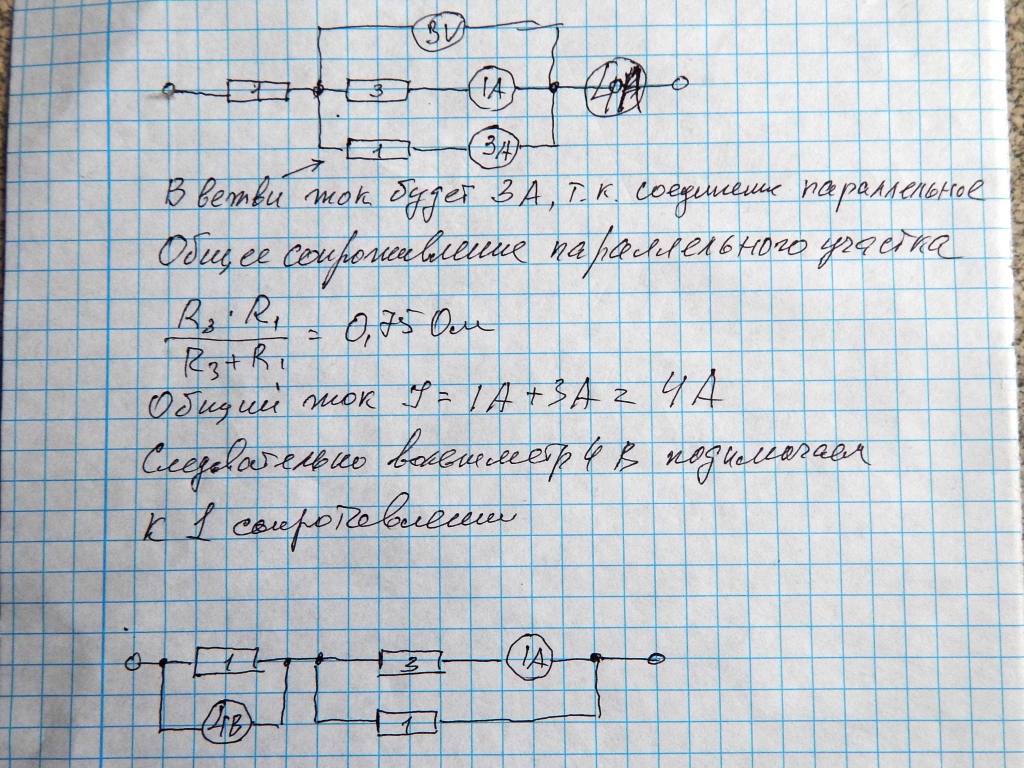 3V
3 1A 4A
1 3A
В ветви ток будет 3А, т.к. соединение параллельное
Общее сопротивление параллельного участка
R₃ · R₁
R₃ + R₁
= 0,75 Ом
Общий ток J = 1А + 3А = 4А
Следовательно вольтметр 4 В подключаем
к 1 сопротивлению
1 3 1А
4В 1